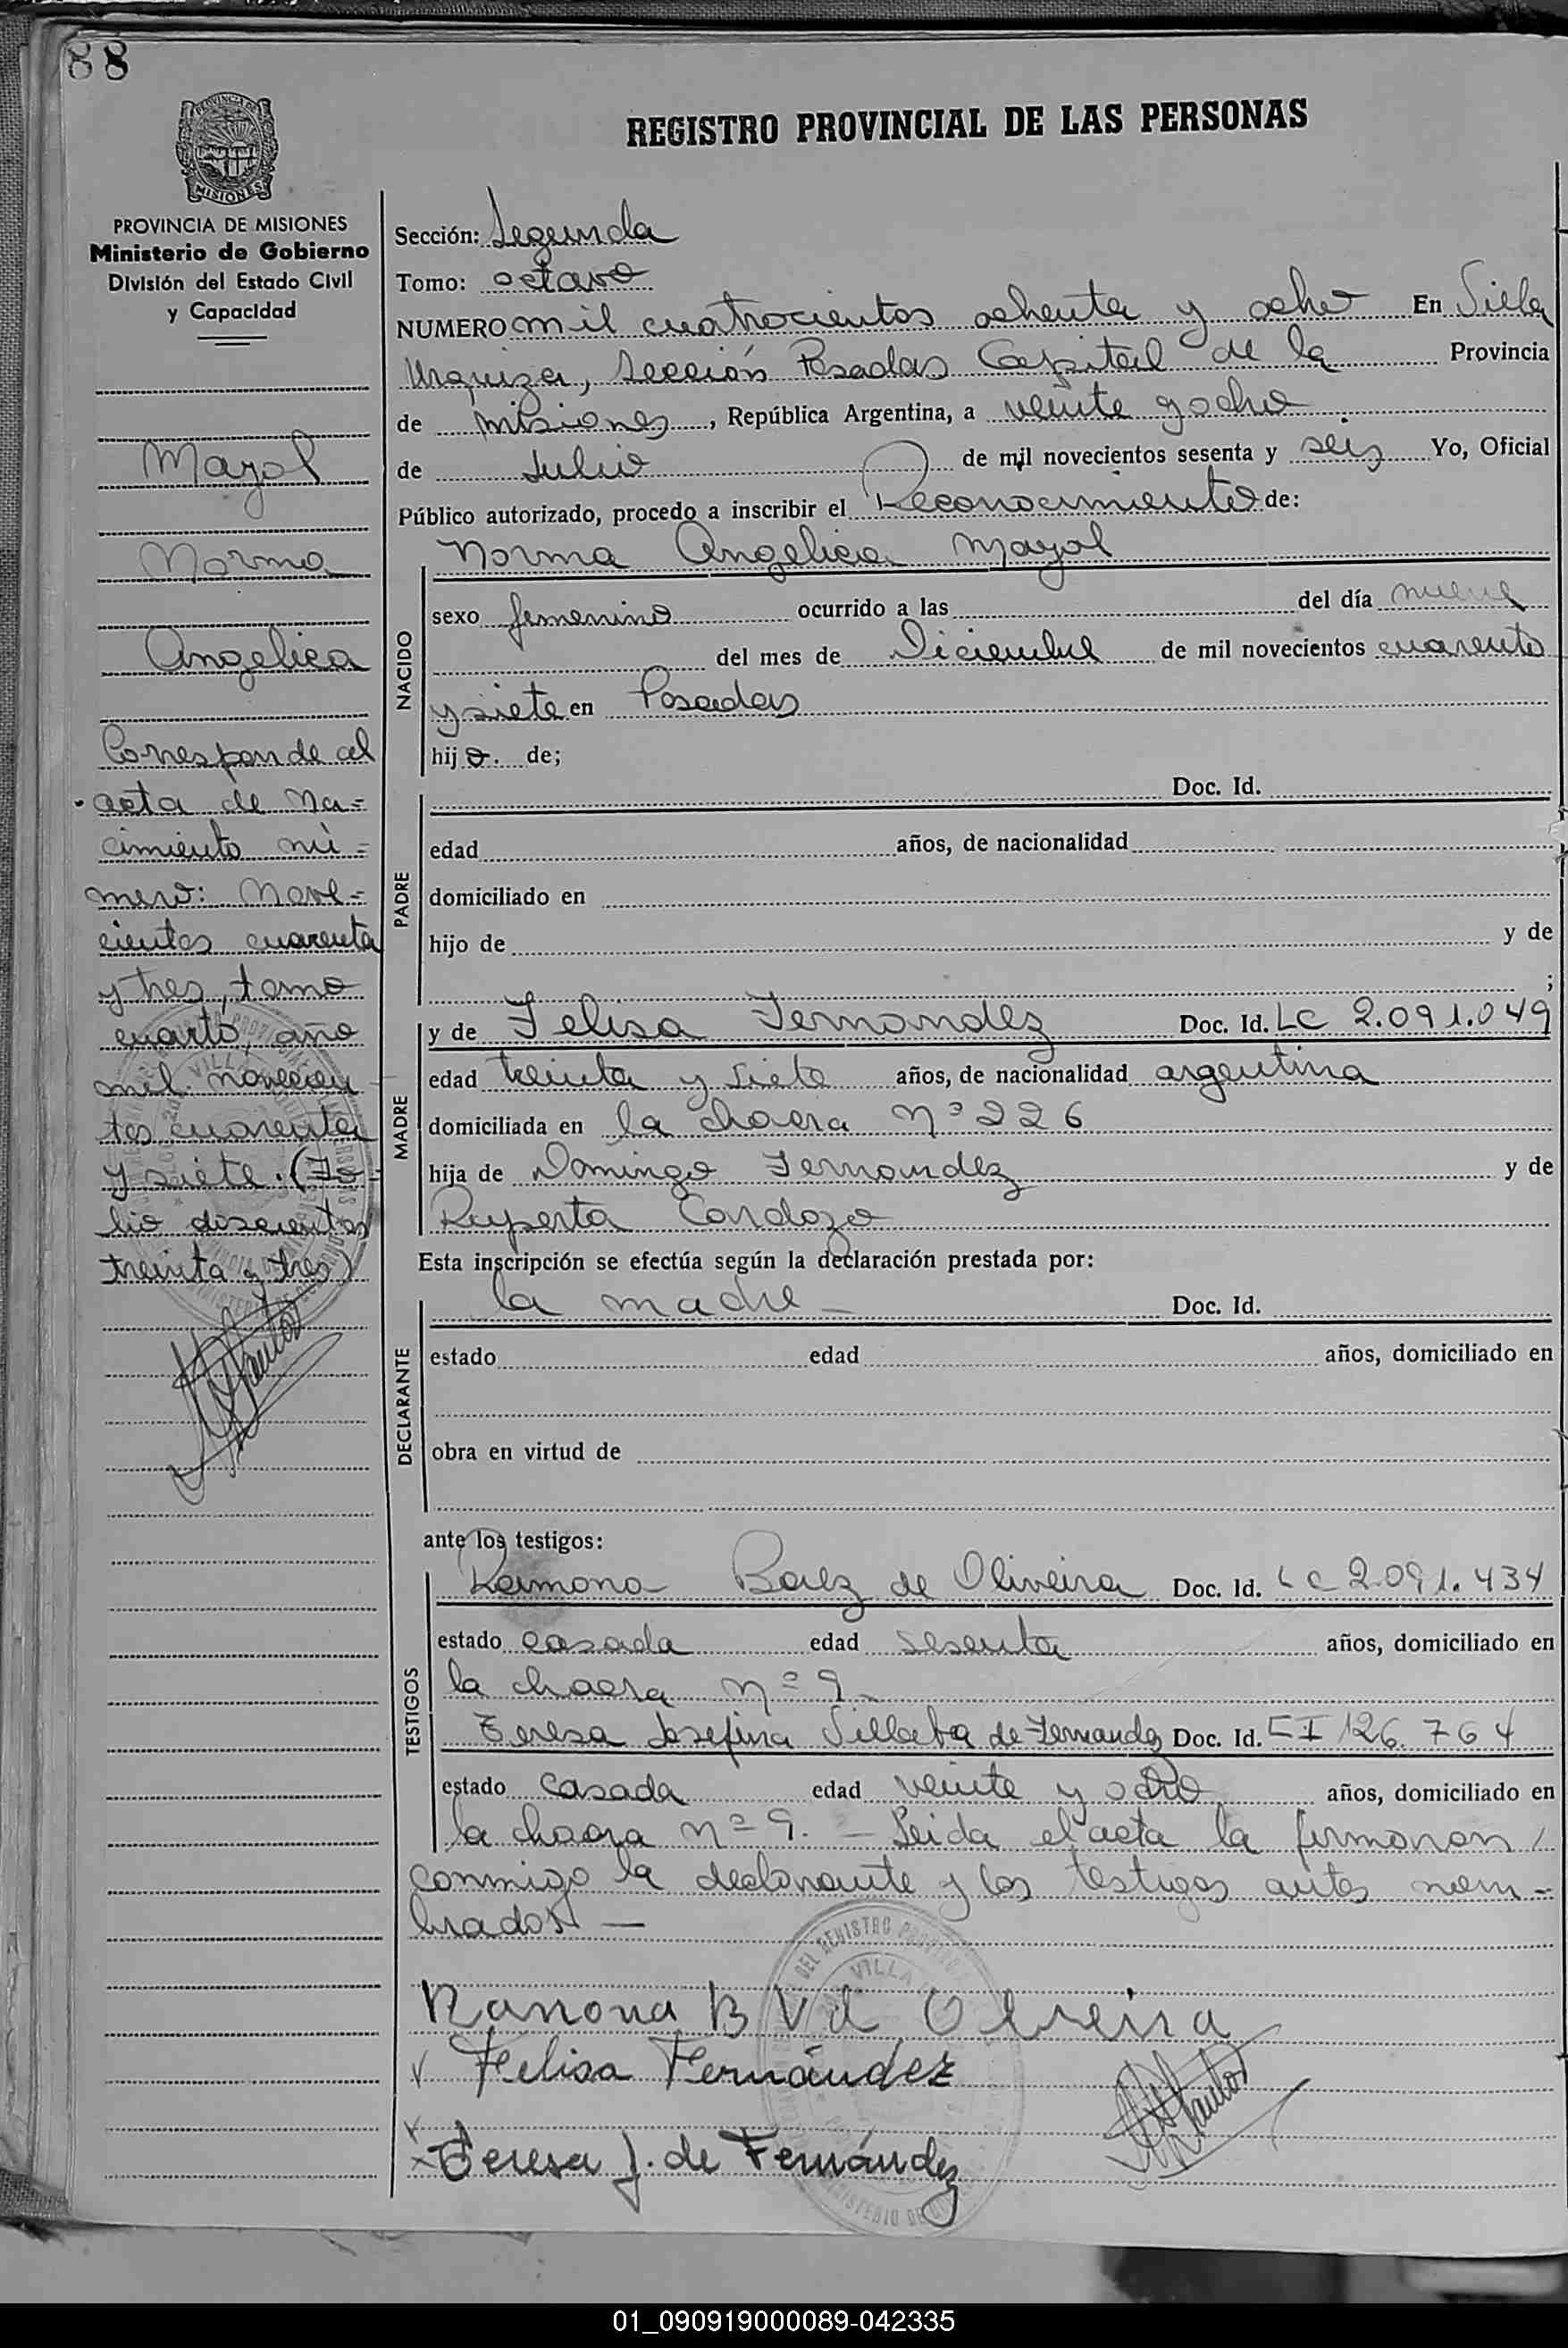 88
REGISTRO PROVINCIAL DE LAS PERSONAS
PROVINCIA DE MISIONES
Ministerio de Gobierno
División del Estado Civil
y Capacidad
Mayol
Norma
Angelica
Corresponde al
acta de na=
cimiento nú=
mero: nove=
cientos cuarenta
y tres, tomo
cuarto, año
mil novecien
tos cuarenta
y siete. (Fo-
lio doscientos
treinta y tres)
Sección: Segunda
Tomo: octavo
NUMERO mil cuatrocientos ochenta y ocho En Villa
Urquiza, Sección Posadas Capital de la Provincia
de Misiones, República Argentina, a veinte y ocho
de Julio de mil novecientos sesenta y seis Yo, Oficial
Público autorizado, procedo a inscribir el Reconocimiento de:
Norma Angelica Mayol
NACIDO
sexo femenino ocurrido a las del día nueve
del mes de Diciembre de mil novecientos cuarenta
y siete en Posadas
hij a. de;
PADRE
Doc. Id.
edad años, de nacionalidad
domiciliado en
hijo de y de
;
MADRE
y de Felisa Fernandez Doc. Id. LC 2.091.049
edad treinta y siete años, de nacionalidad argentina
domiciliada en la chacra nº 226
hija de Domingo Fernandez y de
Ruperta Cardozo
Esta inscripción se efectúa según la declaración prestada por:
DECLARANTE
la madre — Doc. Id.
estado edad años, domiciliado en
obra en virtud de
ante los testigos:
TESTIGOS
Ramona Baez de Oliveira Doc. Id. LC 2.091.434
estado casada edad sesenta años, domiciliado en
la chacra nº 9 —
Teresa Josefina Villalba de Fernandez Doc. Id. CI 126.764
estado casada edad veinte y ocho años, domiciliado en
la chacra nº 9. — Leida el acta la firmaron /
conmigo la declarante y los testigos antes nom-
brados —
Ramona B Vd Oliveira
Felisa Fernández
Teresa J. de Fernández
01_090919000089-042335